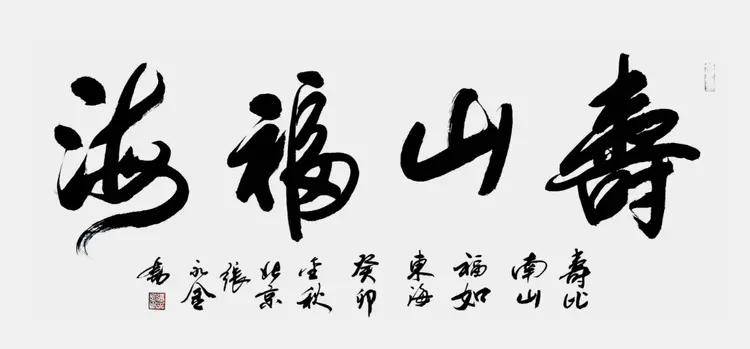 壽山福海
壽比
南山
福如
東海
癸卯
金秋
北京
張
永金
書